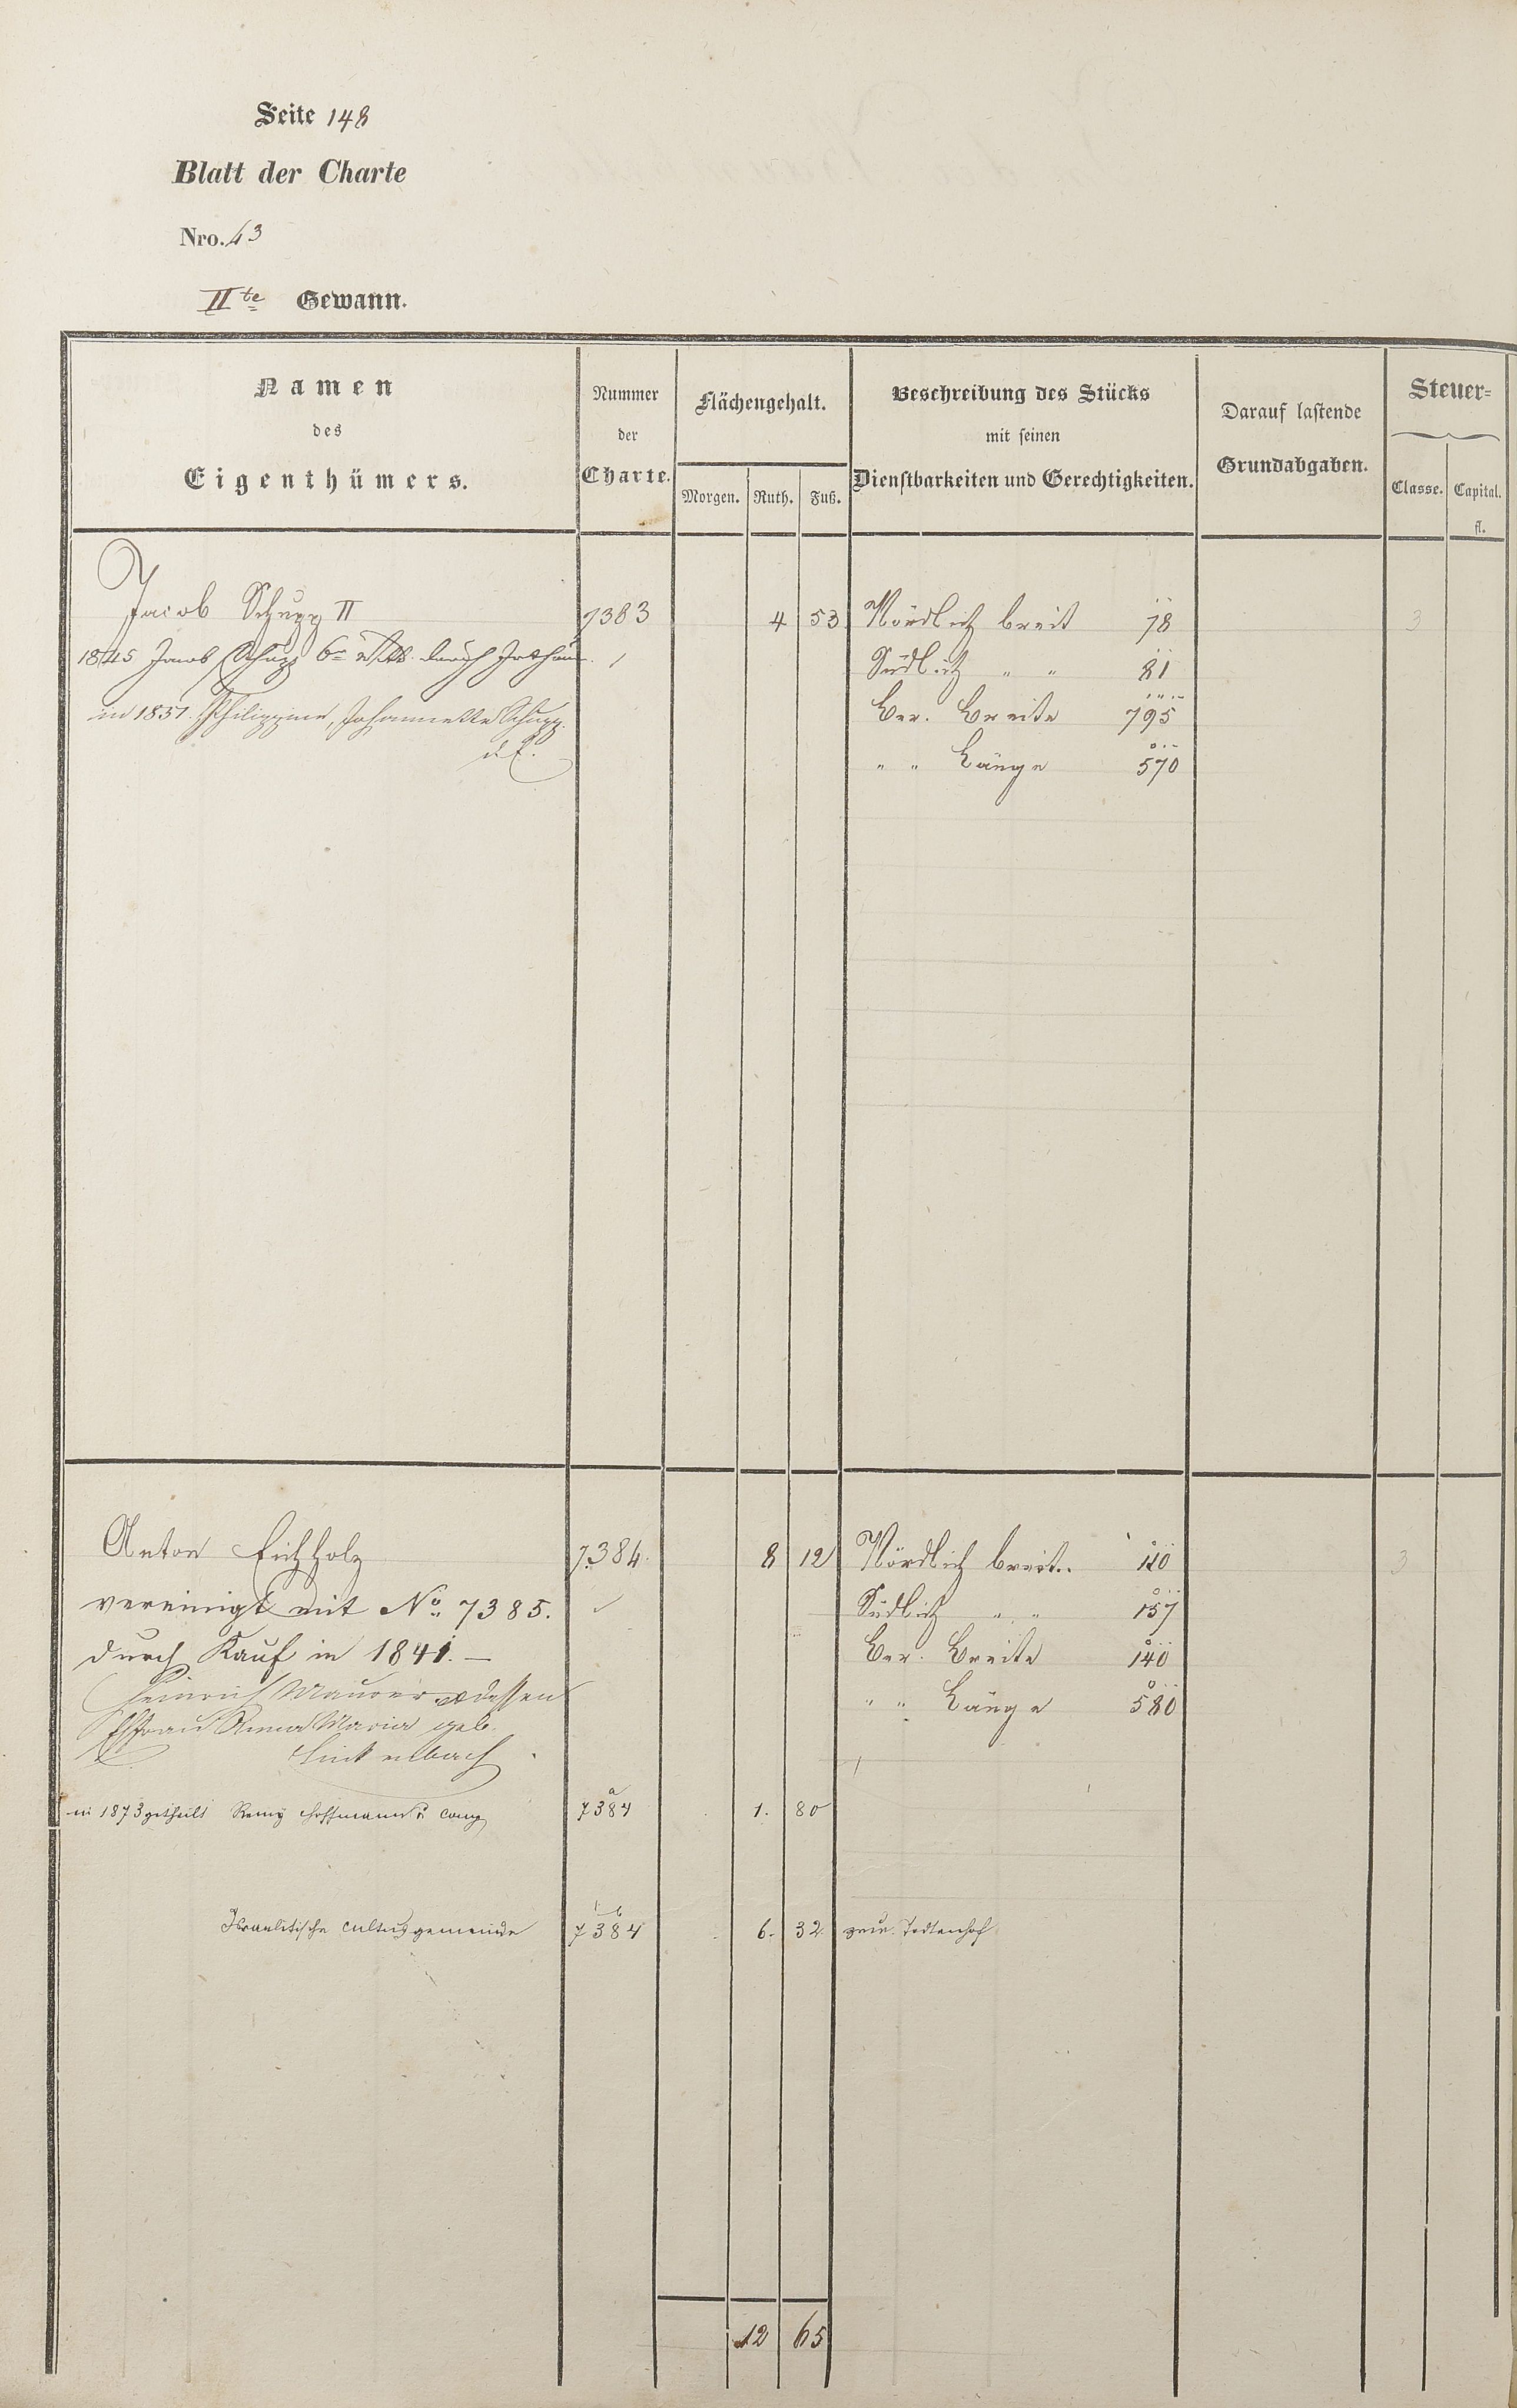 Seite 148
Blatt der Charte
Nro. 43
IIte Gewann.
Namen
des
Eigenthümers.
Nummer
der
Charte.
Flächengehalt.
Morgen. Ruth. Fuß.
Beschreibung des Stücks
mit seinen
Dienstbarkeiten und Gerechtigkeiten.
Darauf lastende
Grundabgaben.
Steuer=
Classe. Capital.
fl.
Jacob Schupp II 7383 4 53 Nördlich breit 78 3
1845 Jacob Schupp 6r durch Südlich " " 81
in 1851. Philippine, Johannette Schupp Ber. Breite 795
" " Länge 570
Anton Eichholz 7384. 8 12 Nördlich breit.. 120 3
vereinigt mit No. 7385. Südlich " " 157
durch Kauf in 1841. — Ber. Breite 140
Heinrich Maurer dessen " " Länge 580
Ehfrau Anna Maria geb.
in 1873 getheilt Remy Hoffmann & Comp 7384 a 1. 80
Israelitische Cultusgemeinde 7384 b 6. 32 Todtenhof
12 65